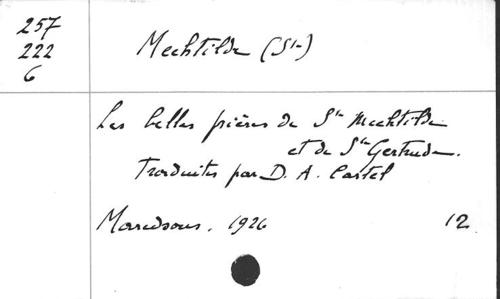 257
222
6
Mechtilde (Ste)
Les belles prières de Ste Mechtilde
et de Ste Gertrude.
Traduites par D. A. Castel
Maredsous. 1926 12